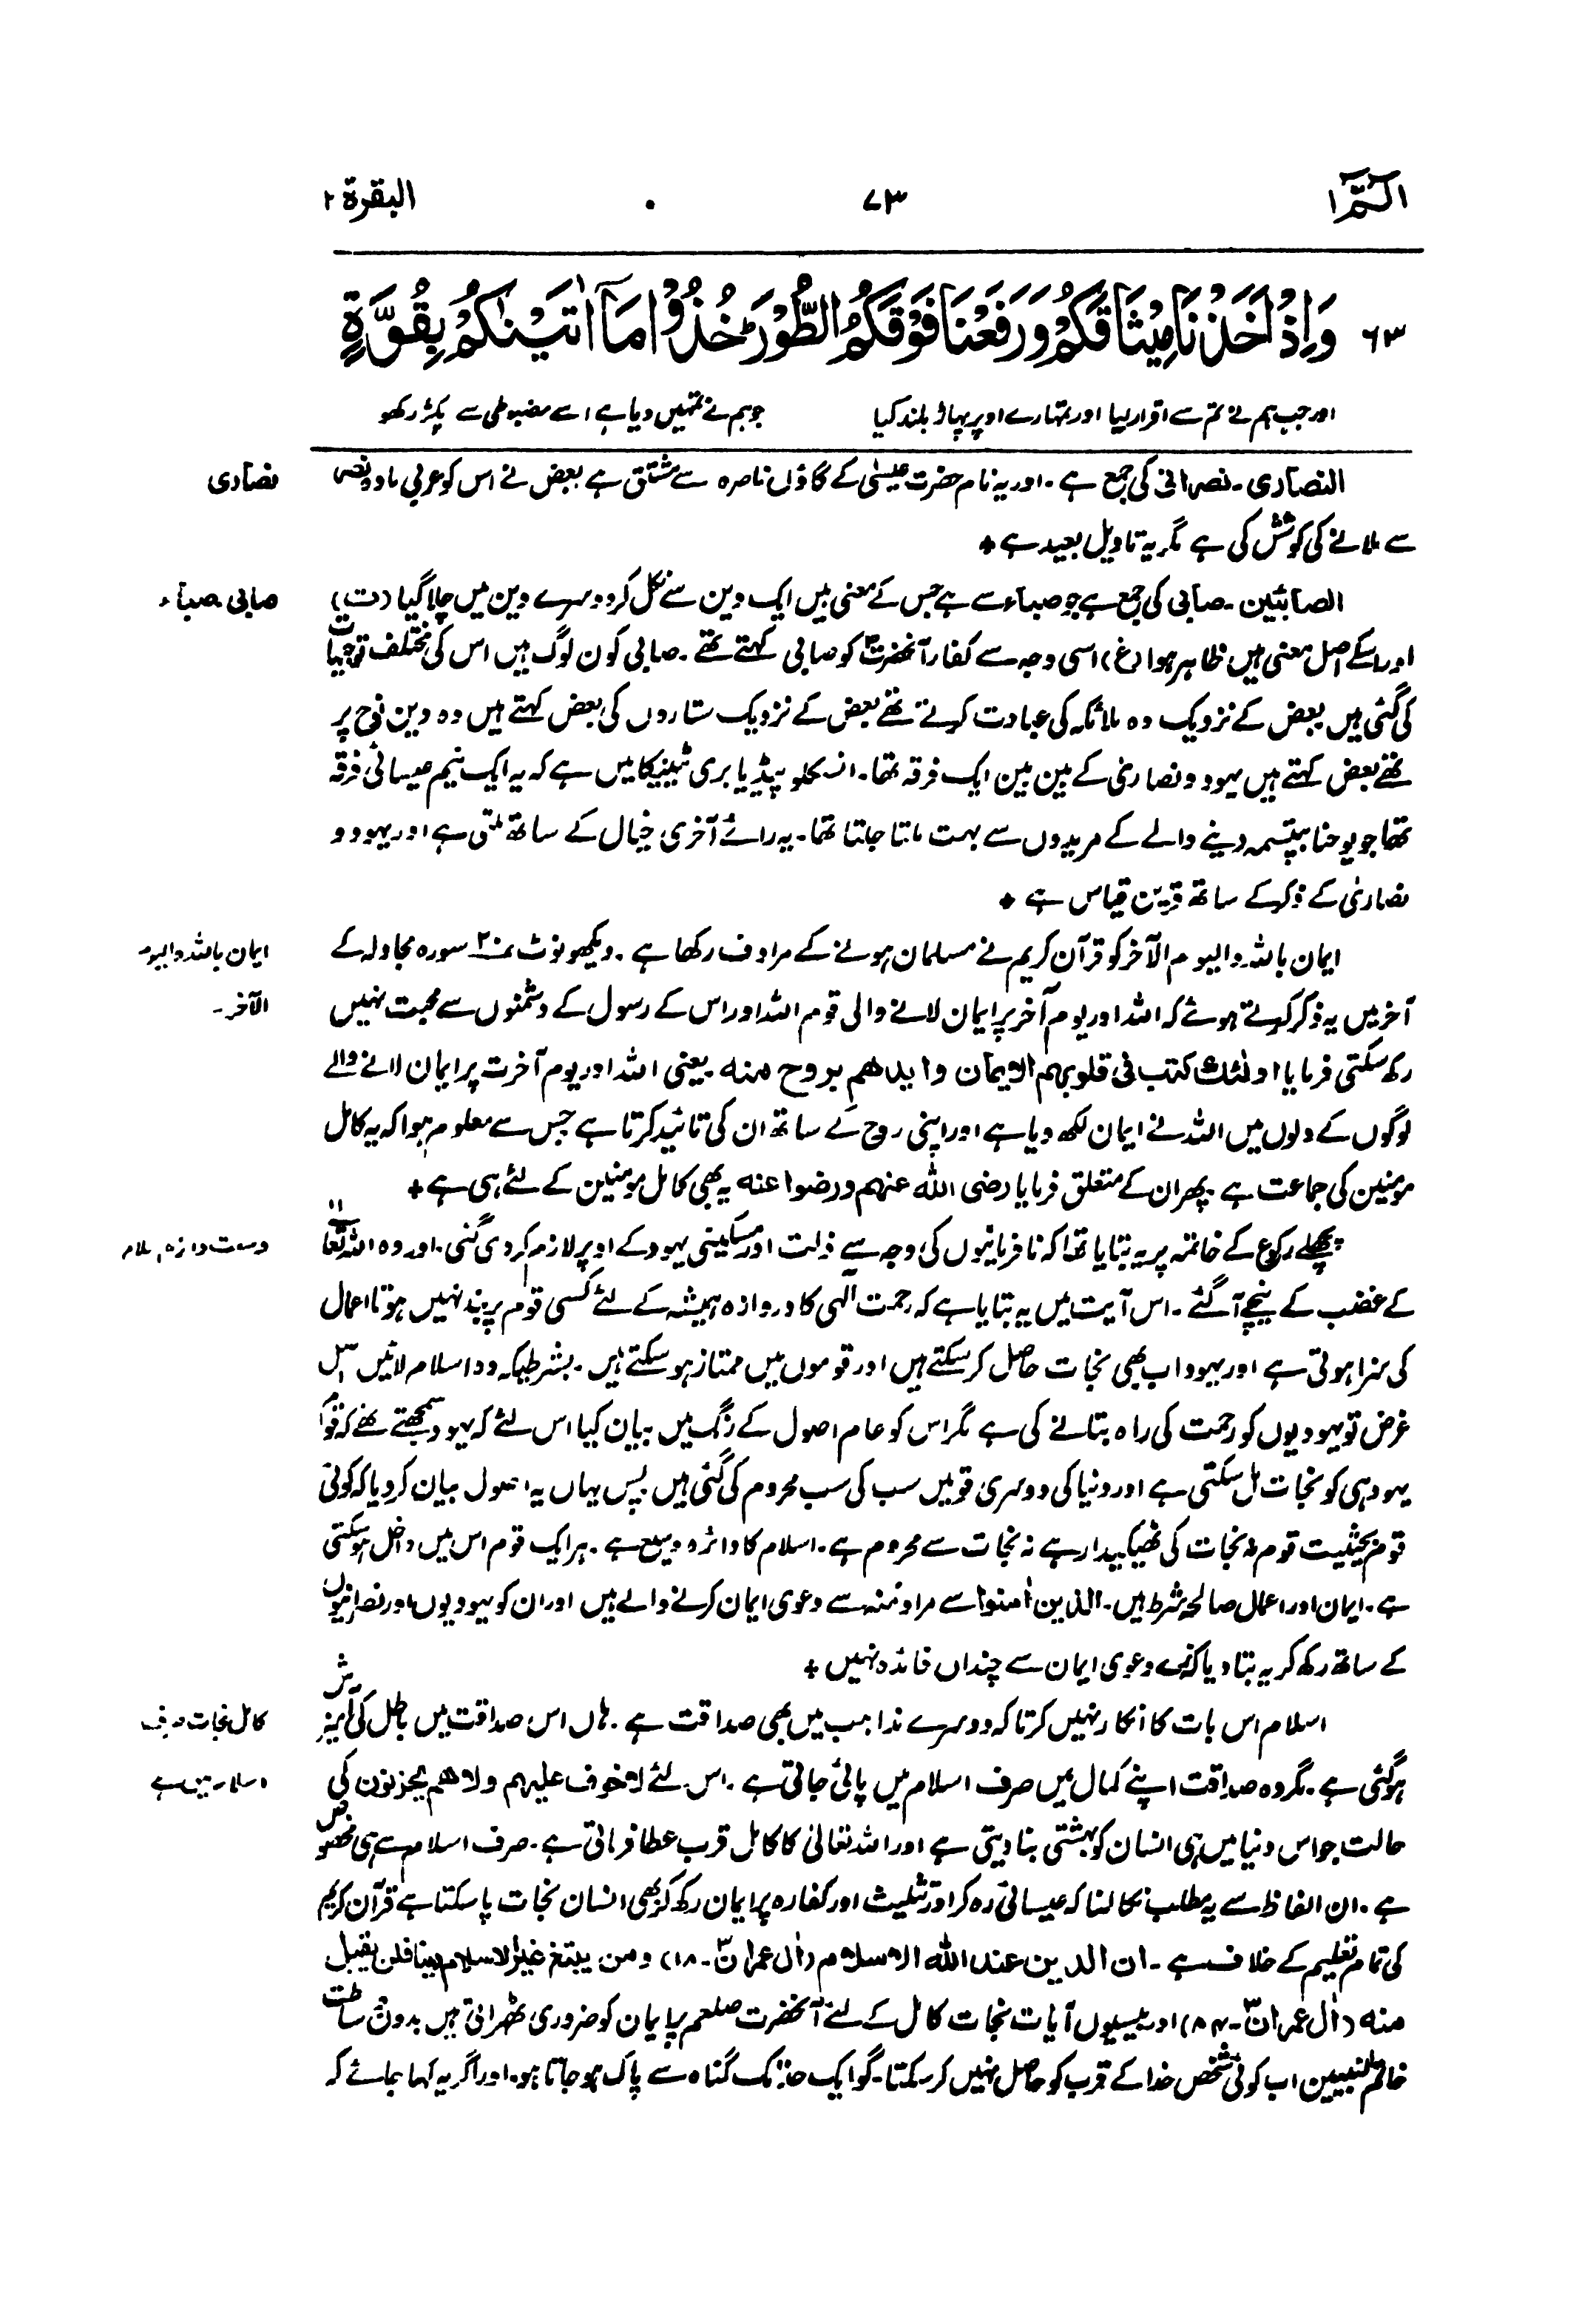 الٓمّٓ ۱ ۷۳ البقرۃ ۲
۶۳ وَاِذْ اَخَذْنَا مِیْثَاقَکُمْ وَرَفَعْنَا فَوْقَکُمُ الطُّوْرَ ؕ خُذُوْا مَآ اٰتَیْنٰکُمْ بِقُوَّۃٍ
اور جب ہم نے تم سے اقرار لیا اور تمہارے اوپر پہاڑ بلند کیا جو ہم نے تمہیں دیا ہے اسے مضبوطی سے پکڑ رکھو
نصاریٰ
النصاریٰ۔ نصرانی کی جمع ہے۔ اور یہ نام حضرت عیسیٰ کے گاؤں ناصرہ سے مشتق ہے بعض نے اس کو عربی مادہ نصر
سے ملانے کی کوشش کی ہے مگر یہ تاویل بعید ہے +
صابی۔ صباء
الصابئین۔ صابی کی جمع ہے جو صباء سے ہے جس کے معنی ہیں ایک دین سے نکل کر دوسرے دین میں چلا گیا (ت)
اور اسکے اصل معنی ہیں ظاہر ہوا (غ) اسی وجہ سے کفار آنحضرتؐ کو صابی کہتے تھے۔ صابی کون لوگ ہیں اس کی مختلف توجیہات
کی گئی ہیں بعض کے نزدیک وہ ملائکہ کی عبادت کرتے تھے بعض کے نزدیک ستاروں کی بعض کہتے ہیں وہ دین نوح پر
تھے بعض کہتے ہیں یہود و نصاریٰ کے بین بین ایک فرقہ تھا۔ انسکلوپیڈیا بری ٹینیکا میں ہے کہ یہ ایک نیم عیسائی فرقہ
تھا جو یوحنا بپتسمہ دینے والے کے مریدوں سے بہت ملتا جلتا تھا۔ یہ رائے آخری خیال کے ساتھ ملتی ہے اور یہود و
نصاریٰ کے ذکر کے ساتھ قرین قیاس ہے +
ایمان باللہ والیوم الآخر۔
ایمان باللہ والیوم الآخر کو قرآن کریم نے مسلمان ہونے کے مرادف رکھا ہے۔ دیکھو نوٹ نمبر ۲۰ سورہ مجادلہ کے
آخر میں یہ ذکر کرتے ہوئے کہ اللہ اور یوم آخر پر ایمان لانے والی قوم اللہ اور اس کے رسول کے دشمنوں سے محبت نہیں
رکھ سکتی فرمایا اولٰئک کتب فی قلوبہم الایمان وایدھم بروح منہ یعنی اللہ اور یوم آخرت پر ایمان لانے والے
لوگوں کے دلوں میں اللہ نے ایمان لکھ دیا ہے اور اپنی روح کے ساتھ ان کی تائید کرتا ہے جس سے معلوم ہوا کہ یہ کامل
مومنین کی جماعت ہے پھر ان کے متعلق فرمایا رضی اللہ عنہم ورضوا عنہ یہ بھی کامل مومنین کے لئے ہی ہے +
وسعت دائرہ اسلام
پچھلے رکوع کے خاتمہ پر یہ بتایا تھا کہ نافرمانیوں کی وجہ سے ذلت اور مسکینی یہود کے اوپر لازم کر دی گئی۔ اور وہ اللہ تعالیٰ
کے غضب کے نیچے آگئے۔ اس آیت میں یہ بتایا ہے کہ رحمت الٰہی کا دروازہ ہمیشہ کے لئے کسی قوم پر بند نہیں ہوتا اعمال
کی سزا ہوتی ہے اور یہود اب بھی نجات حاصل کر سکتے ہیں اور قوموں میں ممتاز ہو سکتے ہیں۔ بشرطیکہ وہ اسلام لائیں اصل
غرض تو یہودیوں کو رحمت کی راہ بتانے کی ہے مگر اس کو عام اصول کے رنگ میں بیان کیا اس لئے کہ یہود سمجھتے تھے کہ قوم
یہود ہی کو نجات مل سکتی ہے اور دنیا کی دوسری قومیں سب کی سب محروم کی گئی ہیں پس یہاں یہ اصول بیان کر دیا کہ کوئی
قوم بحیثیت قوم نہ نجات کی ٹھیکیدار ہے نہ نجات سے محروم ہے۔ اسلام کا دائرہ وسیع ہے۔ ہر ایک قوم اس میں داخل ہو سکتی
ہے۔ ایمان اور اعمال صالحہ شرط ہیں۔ الذین اٰمنوا سے مراد منہ سے دعویٰ ایمان کرنے والے ہیں اور ان کو یہودیوں اور نصرانیوں
کے ساتھ رکھ کر یہ بتا دیا کہ نرے دعویٰ ایمان سے چنداں فائدہ نہیں +
کامل نجات صرف اسلام میں ہے
اسلام اس بات کا انکار نہیں کرتا کہ دوسرے مذاہب میں بھی صداقت ہے۔ ہاں اس صداقت میں باطل کی آمیزش
ہو گئی ہے۔ مگر وہ صداقت اپنے کمال میں صرف اسلام میں پائی جاتی ہے۔ اس لئے لاخوف علیہم ولاھم یحزنون کی
حالت جو اس دنیا میں ہی انسان کو بہشتی بنا دیتی ہے اور اللہ تعالیٰ کا کامل قرب عطا فرماتی ہے۔ صرف اسلام سے ہی مخصوص
ہے۔ ان الفاظ سے یہ مطلب نکالنا کہ عیسائی رہ کر اور تثلیث اور کفارہ پر ایمان رکھ کر بھی انسان نجات پا سکتا ہے قرآن کریم
کی تمام تعلیم کے خلاف ہے۔ ان الدین عند اللہ الاسلام (اٰل عمران ۳۔ ۱۸) ومن یبتغ غیر الاسلام دینا فلن یقبل
منہ (اٰل عمران ۳۔ ۸۴) اور بیسیوں آیات نجات کامل کے لئے آنحضرت صلعم پر ایمان کو ضروری ٹھہراتی ہیں بدوں وساطت
خاتم النبیین اب کوئی شخص خدا کے قرب کو حاصل نہیں کر سکتا۔ گو ایک حد تک گناہ سے پاک ہو جاتا ہو۔ اور اگر یہ کہا جائے کہ